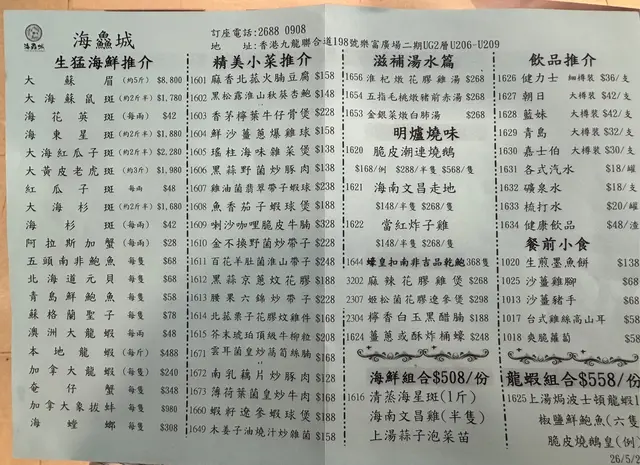 海鱻城
訂座電話:2688 0908
地 址:香港九龍聯合道198號樂富廣場二期UG2層U206-U209
生猛海鮮推介
大蘇眉 (約5斤) $8,800
大海蘇鼠斑 (約2斤半) $1,780
海花英斑 (每兩) $42
海東星斑 (約2斤半) $1,880
大海紅瓜子斑 (約2斤半) $2,280
大黃皮老虎斑 (約3斤) $1,980
紅瓜子斑 每兩 $48
大海杉斑 (約2斤半) $1,680
海杉斑 (每兩) $42
阿拉斯加蟹 (每兩) $28
五頭南非鮑魚 每隻 $68
北海道元貝 每隻 $68
青島鮮鮑魚 每隻 $58
蘇格蘭蟶子 每隻 $78
澳洲大龍蝦 每兩 $48
本地龍蝦 (每斤) $488
加拿大龍蝦 (每隻) $240
奄仔蟹 每隻 $348
加拿大象拔蚌 每隻 $980
海螳螂 每隻 $308
精美小菜推介
1601 麻香北菰火腩豆腐 $158
1602 黑松露淮山秋葵杏鮑 $148
1603 香茅檸葉牛仔骨煲 $228
1604 鮮沙薑蔥爆雞球 $158
1605 瑤柱海味雜菜煲 $138
1606 黑蒜野菌炒豚肉 $138
1607 雞油菌翡翠帶子蝦球 $238
1608 魚香茄子蝦球煲 $188
1609 喇沙咖哩脆皮牛腩 $328
1610 金不換野菌炒帶子 $228
1611 百花羊肚菌淮山帶子 $248
1612 黑蒜京蔥炆花膠 $188
1613 腰果六錦炒帶子 $228
1614 北菰栗子花膠炆雞件 $168
1615 芥末琥珀頂級牛柳粒 $208
1671 雲耳菌皇炒萵筍絲腩 $168
1672 南乳藕片炒豚肉 $128
1673 薄荷葉菌皇炒牛肉 $168
1660 蝦籽遼參蝦球煲 $188
1649 木姜子油燒汁炒雜菌 $158
滋補湯水篇
1656 淮杞燉花膠雞湯 $268
1654 五指毛桃燉豬前赤湯 $268
1653 金銀菜燉白肺湯 $268
明爐燒味
1620 脆皮潮連燒鵝
$168/例 $288/半隻 $568/隻
1621 海南文昌走地
$148/半隻 $288/隻
1622 當紅炸子雞
$148/半隻 $288/隻
1644 蠔皇扣南非吉品乾鮑 368隻
3202 麻辣花膠雞煲 $268
2307 姬松菌花膠遼參煲 $298
2304 檸香白玉黑醋腩 $188
1624 薑蔥或酥炸桶蠔 $248
海鮮組合$508/份
1616 清蒸海星斑(1斤)
海南文昌雞(半隻)
上湯蒜子泡菜苗
飲品推介
1626 健力士 細樽裝 $36/支
1627 朝日 大樽裝 $42/支
1628 藍妹 大樽裝 $42/支
1629 青島 大樽裝 $32/支
1630 嘉士伯 大樽裝 $30/支
1631 各式汽水 $18/罐
1632 礦泉水 $18/支
1633 梳打水 $20/罐
1634 健康飲品 $48/渣
餐前小食
1020 生煎墨魚餅 $138
1025 沙薑雞腳 $68
1013 沙薑豬手 $68
1017 台式雞絲高山耳 $58
1018 爽脆蘿蔔 $58
龍蝦組合$558/份
1625 上湯焗波士頓龍蝦1
椒鹽鮮鮑魚(六隻
脆皮燒鵝皇(例)
26/5/2